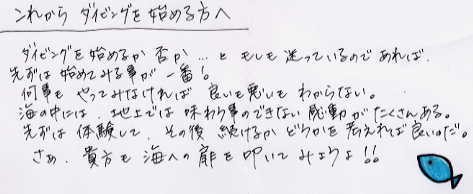 これから ダイビングを始める方へ
ダイビングを始めるか 否か…と もしも 迷っているのであれば、
先ずは 始めてみる事が一番!
何事も やってみなければ 良いも悪いも わからない。
海の中には、地上では 味わう事のできない 感動が たくさんある。
先ずは 体験して、その後 続けるか どうかを 考えれば 良いのだ。
さあ、貴方も 海への 扉を 叩いて みようよ!!